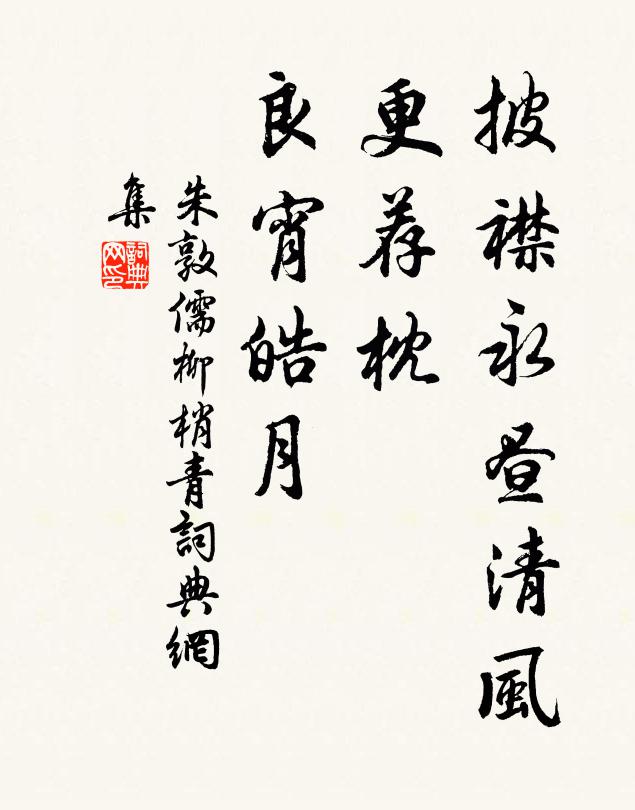 披襟永昼清風
更荐枕
良宵皓月
朱敦儒柳梢青詞典網
集
詞典网印